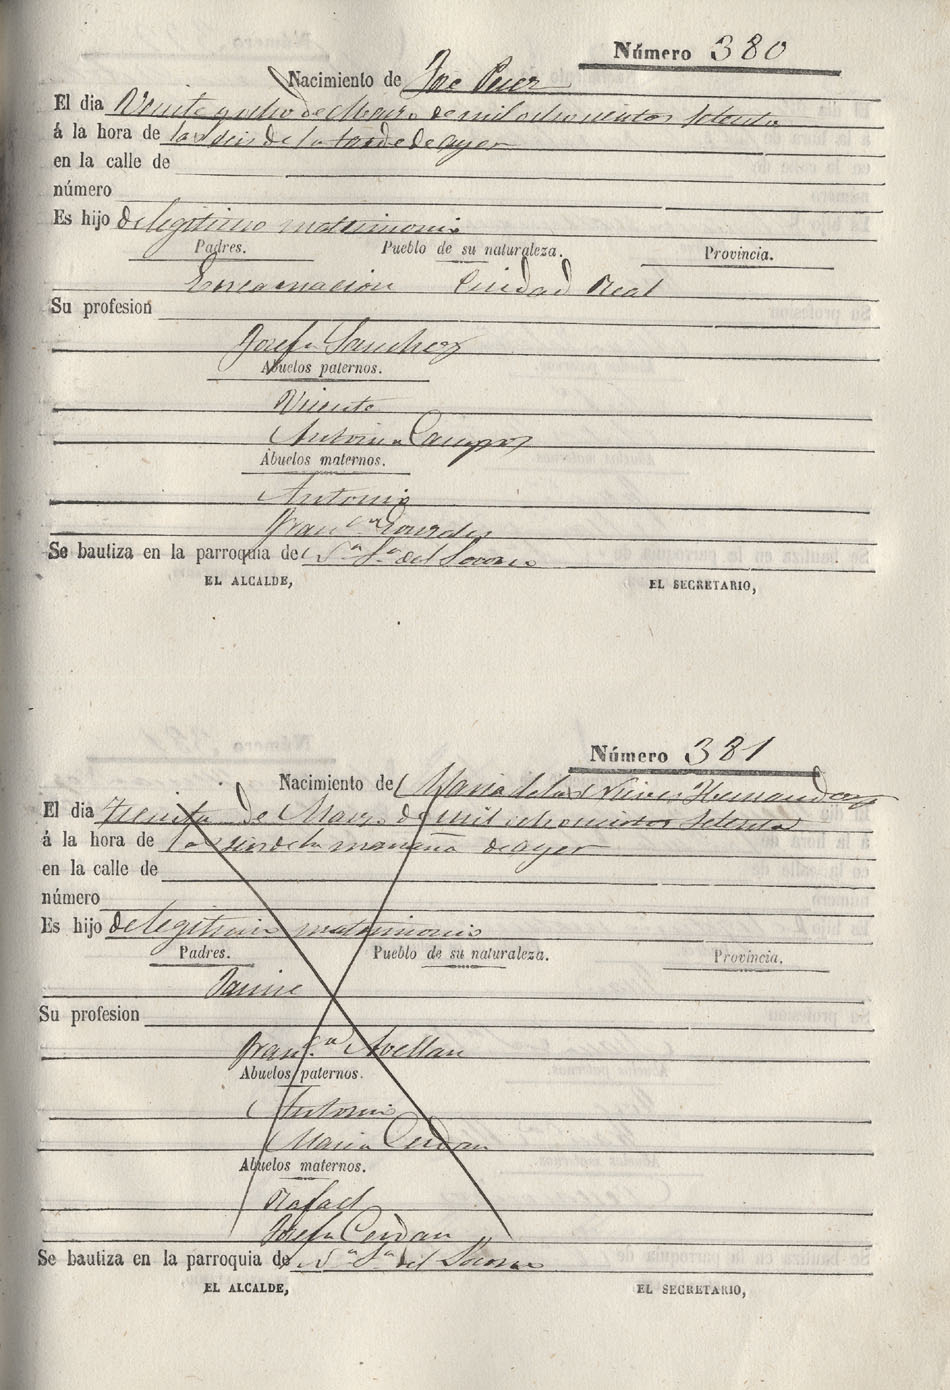 Número 380
Nacimiento de Jose Perez
El dia Veinte y ocho de Marzo de mil ochocientos setenta
á la hora de las seis de la tarde de ayer
en la calle de
número
Es hijo de legitimo matrimonio
Padres. Pueblo de su naturaleza. Provincia.
Encarnacion Ciudad Real
Su profesion
Josefa Sanchez
Abuelos paternos.
Vicente
Antonia Campos
Abuelos maternos.
Antonio
Fran.ca
Se bautiza en la parroquia de N.a S.a del Socorro
EL ALCALDE, EL SECRETARIO,
Número 381
Nacimiento de Maria de las Nieves Hernandez
El dia Treinta de Marzo de mil ochocientos setenta
á la hora de las seis de la mañana de ayer
en la calle de
número
Es hijo de legitimo matrimonio
Padres. Pueblo de su naturaleza. Provincia.
Jaime
Su profesion
Fran.ca Avellan
Abuelos paternos.
Antonio
Maria Cerdan
Abuelos maternos.
Rafael
Josefa Cerdan
Se bautiza en la parroquia de N.a S.a del Socorro
EL ALCALDE, EL SECRETARIO,